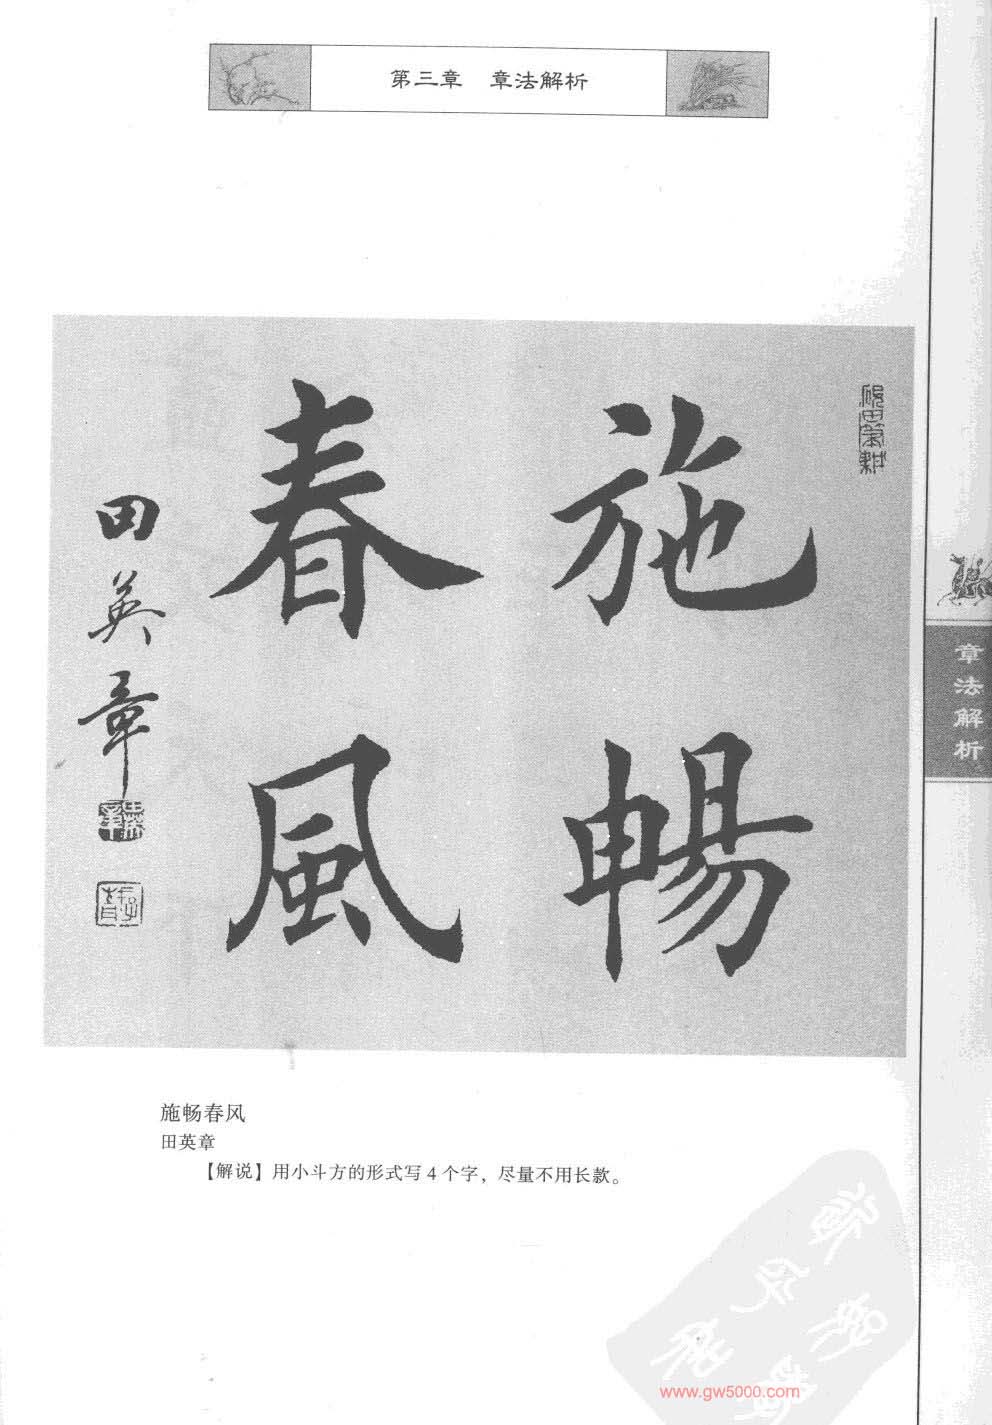 第三章 章法解析
施暢
春風
田英章
砚田笔耕
章法解析
施畅春风
田英章
【解说】用小斗方的形式写 4 个字，尽量不用长款。
www.gw5000.com